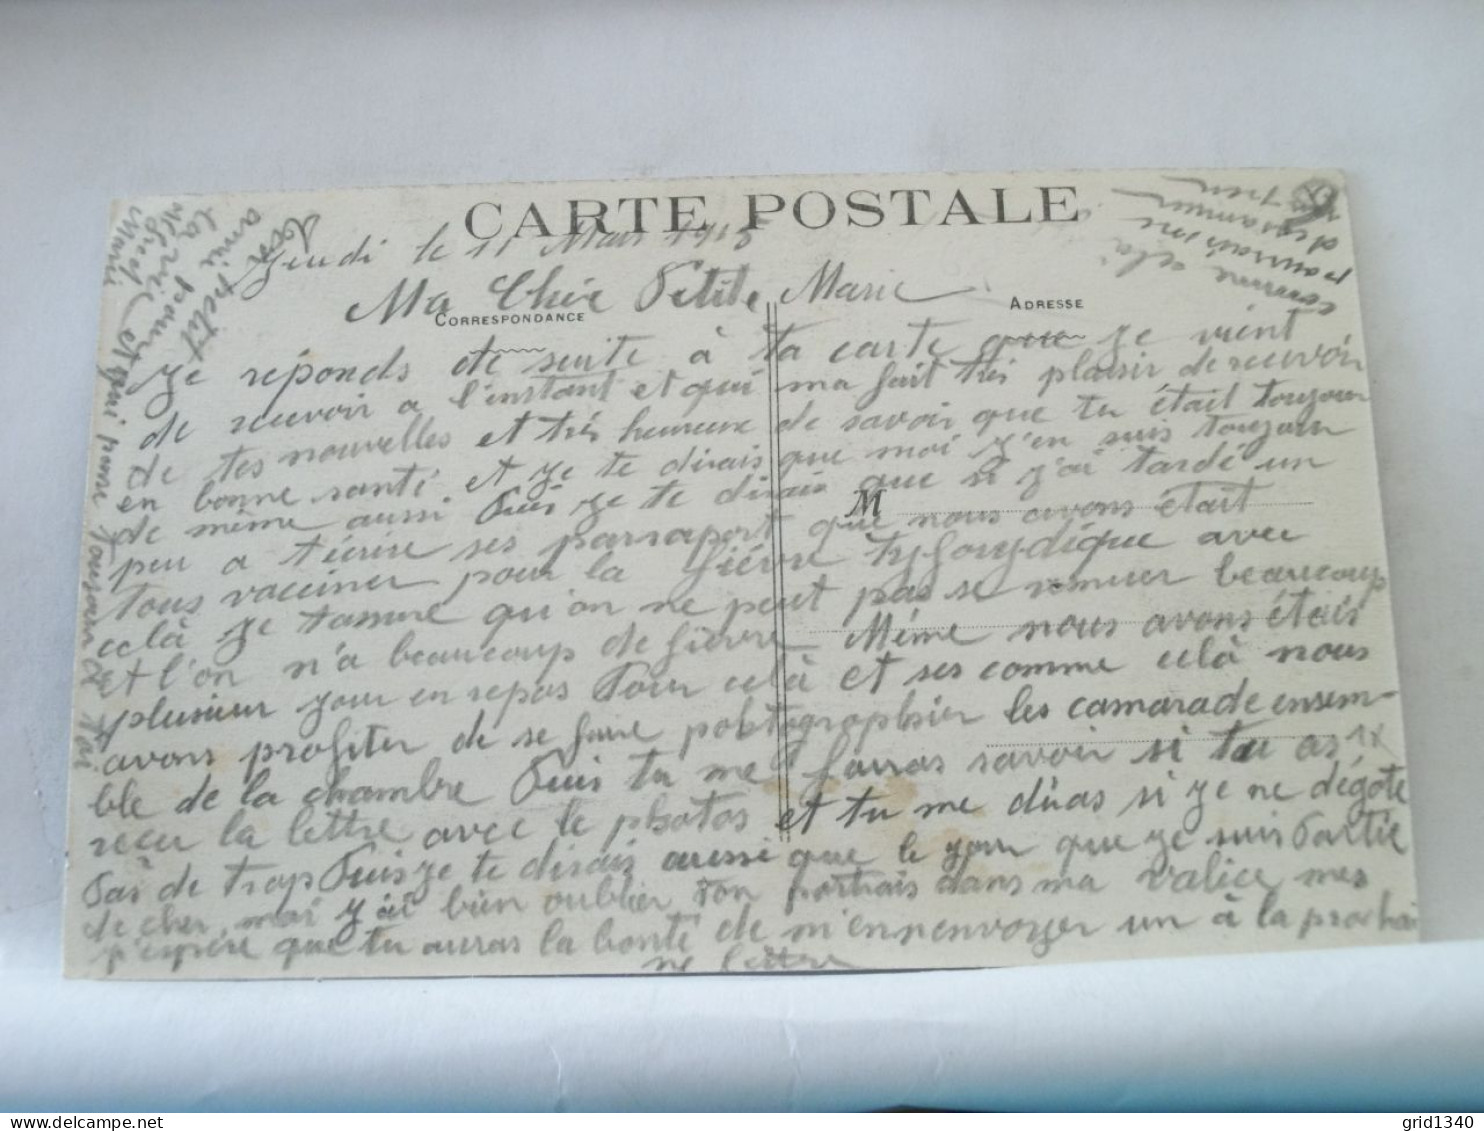 CARTE POSTALE
Jeudi le 11 Mars 1915
Ma Chère Petite Marie
CORRESPONDANCE
ADRESSE
Je réponds de suite à ta carte que je vient
de recevoir a l'instant et qui ma fait très plaisir de recevoir
de tes nouvelles et très heureuse de savoir que tu était toujour
en bonne santé et je te dirais que moi j'en suis toujour
de même aussi. Puis je te dirais que si j'ai tardé un
M
peu a t'écrire ses parraport que nous avons était
tous vacciner pour la fièvre typhouydique avec
celà je tassure qu'on ne peut pas se remuer beaucoup
et l'on n'a beaucoup de fièvre Même nous avons étais
plusieur jour en repos Pour celà et ses comme celà nous
avons profiter de se faire pohtographier les camarade ensem-
ble de la chambre Puis tu me farras savoir si tu as
recu la lettre avec le photos et tu me diras si je ne dégote
Pas de trop Puis je te dirais aussi que le jour que je suis Partie
de cher moi j'ai bien oublier ton portrais dans ma valice mes
j'espère que tu auras la bonté de m'ennenvoyer un à la prochai
ne lettre
Ton petit
ami pour
la vie
Alfred
Marie
et qui pense toujour à toi
comme celà